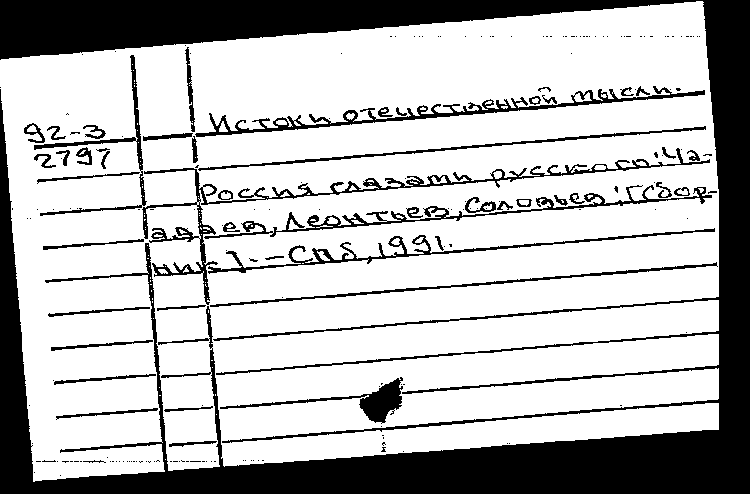 Истоки отечественной мысли.
92-3
2797
Россия глазами русского: Ча-
адаев, Леонтьев, Соловьев: [Сбор-
ник]. - СПб, 1991.